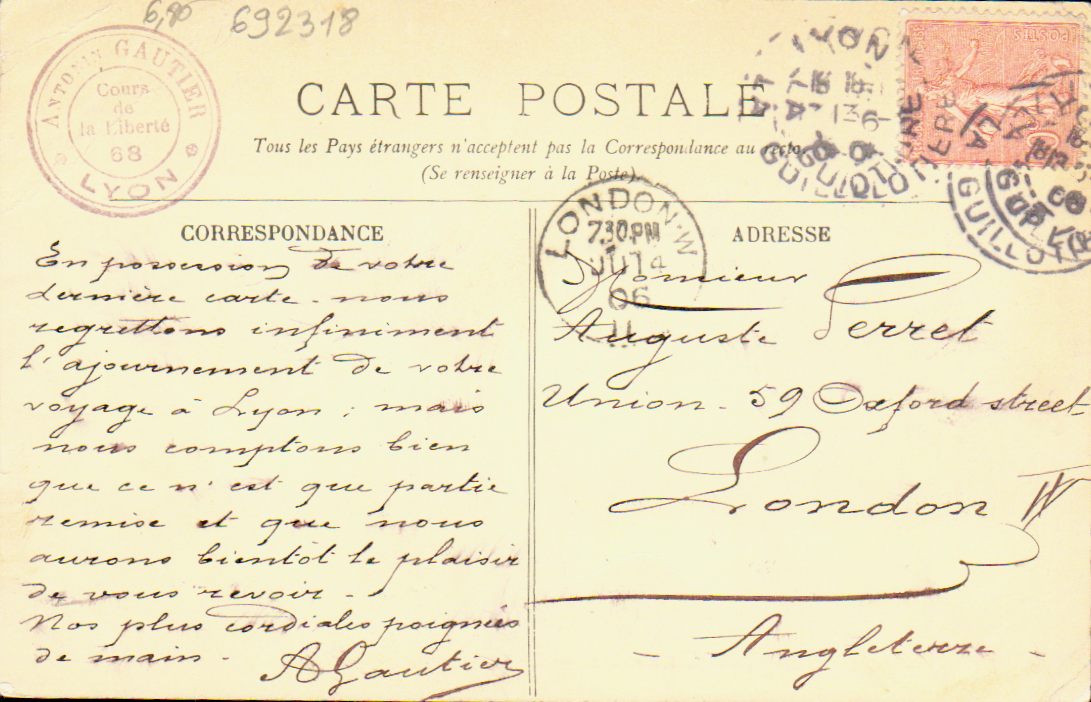 6,80
692318
ANTONIN GAUTIER
Cours
de
la Liberté
68
LYON
CARTE POSTALE
Tous les Pays étrangers n'acceptent pas la Correspondance au recto.
(Se renseigner à la Poste).
LYON
13-6
GUILLOTIERE
POSTES
LYON
LA GUILLOTIERE
LONDON·W
7.30PM
JU 14
06
CORRESPONDANCE
En possession de votre
dernière carte - nous
regrettons infiniment
l'ajournement de votre
voyage à Lyon ; mais
nous comptons bien
que ce n'est que partie
remise et que nous
aurons bientôt le plaisir
de vous revoir -
Nos plus cordiales poignées
de main -
AGautier
ADRESSE
Monsieur
Auguste Perret
Union - 59 Oxford street
London W
- Angleterre -